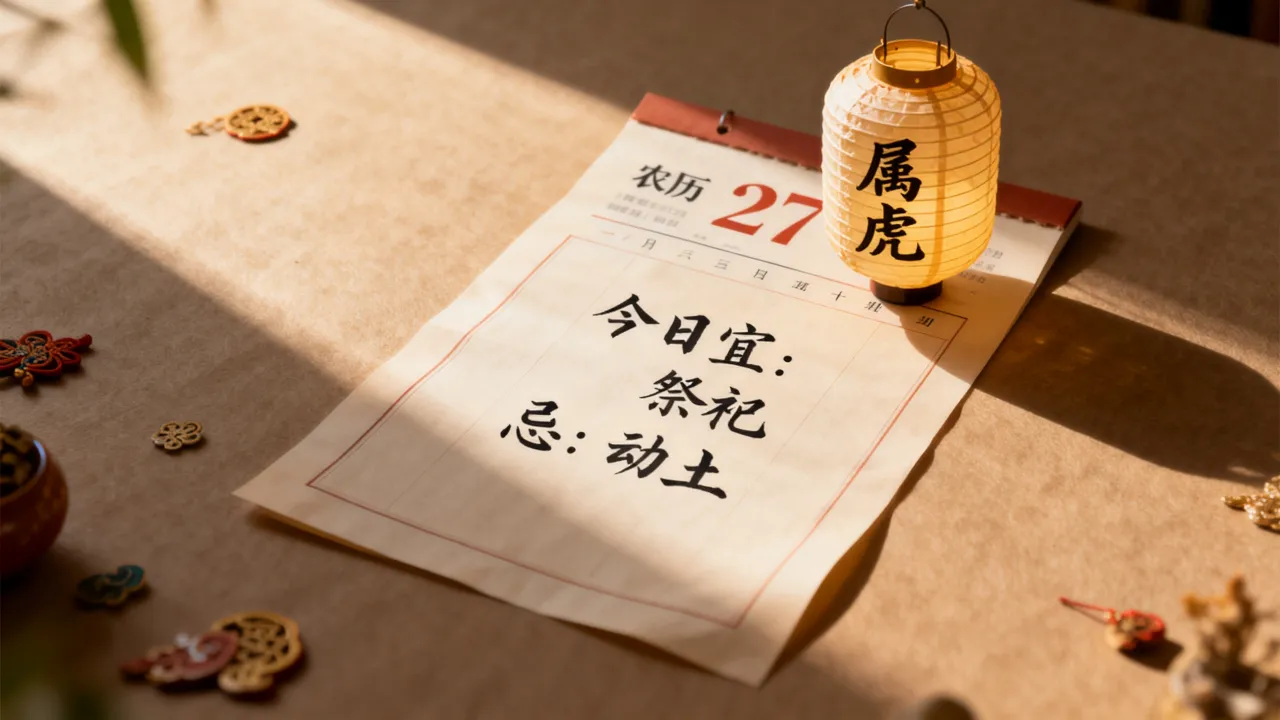 农历 27
属虎
今日宜：
祭祀
忌：动土